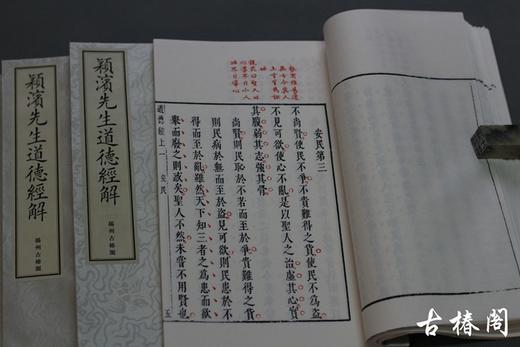 潁濱先生道德經解
揚州古椿閣
潁濱先生道德經解
揚州古椿閣
安民第三
不尚賢使民不爭不貴難得之貨使民不為盜
不見可欲使心不亂是以聖人之治虛其心實
其腹弱其志強其骨
尚賢則民恥於不若而至於爭貴難得之貨
則民病於無而至於盜見可欲則民患於不
得而至於亂雖然天下知三者之為患而欲
舉而廢之則惑矣聖人不然未嘗不用賢也
道德經上一 安民 五
古椿閣